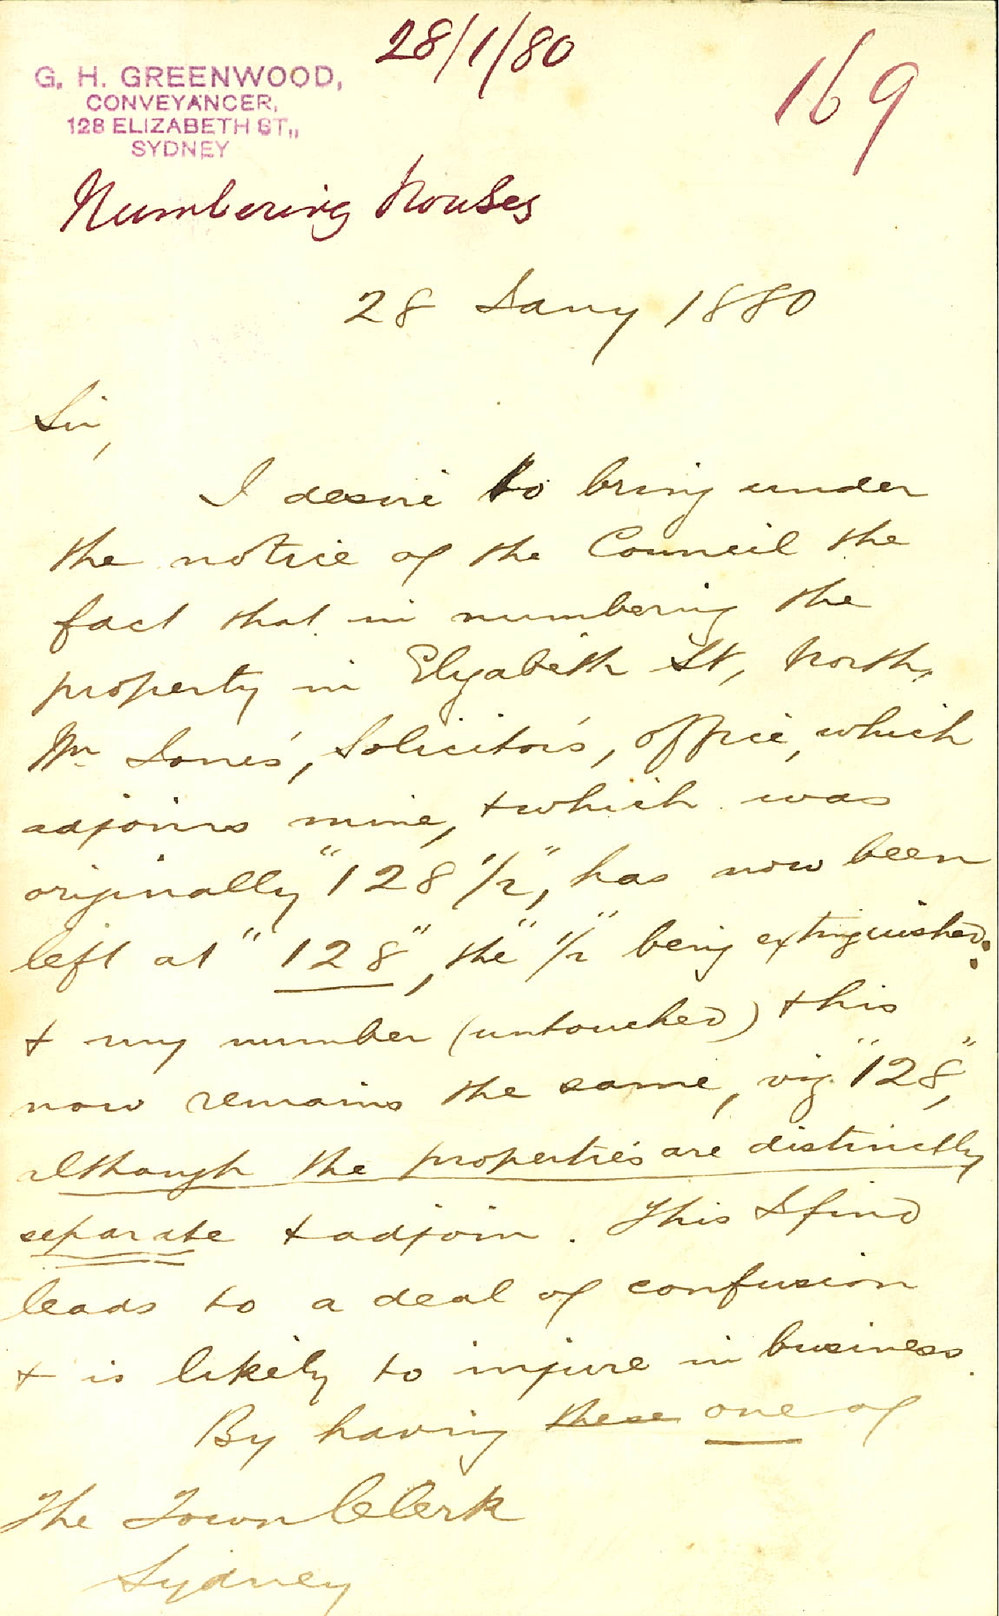 28/1/80
169
G. H. GREENWOOD,
CONVEYANCER,
128 ELIZABETH ST.,
SYDNEY
Numbering Houses
28 Jany 1880
Sir,
I desire to bring under
the notice of the Council the
fact that in numbering the
property in Elizabeth St, North,
Mr Jones', Solicitor's, office, which
adjoins mine, & which was
originally "128 1/2", has now been
left at "128", the "1/2" being extinguished:
& my number (untouched) & his
now remains the same, viz "128",
although the properties are distinctly
separate & adjoin. This I find
leads to a deal of confusion
& is likely to injure in business.
By having these one of
The Town Clerk
Sydney